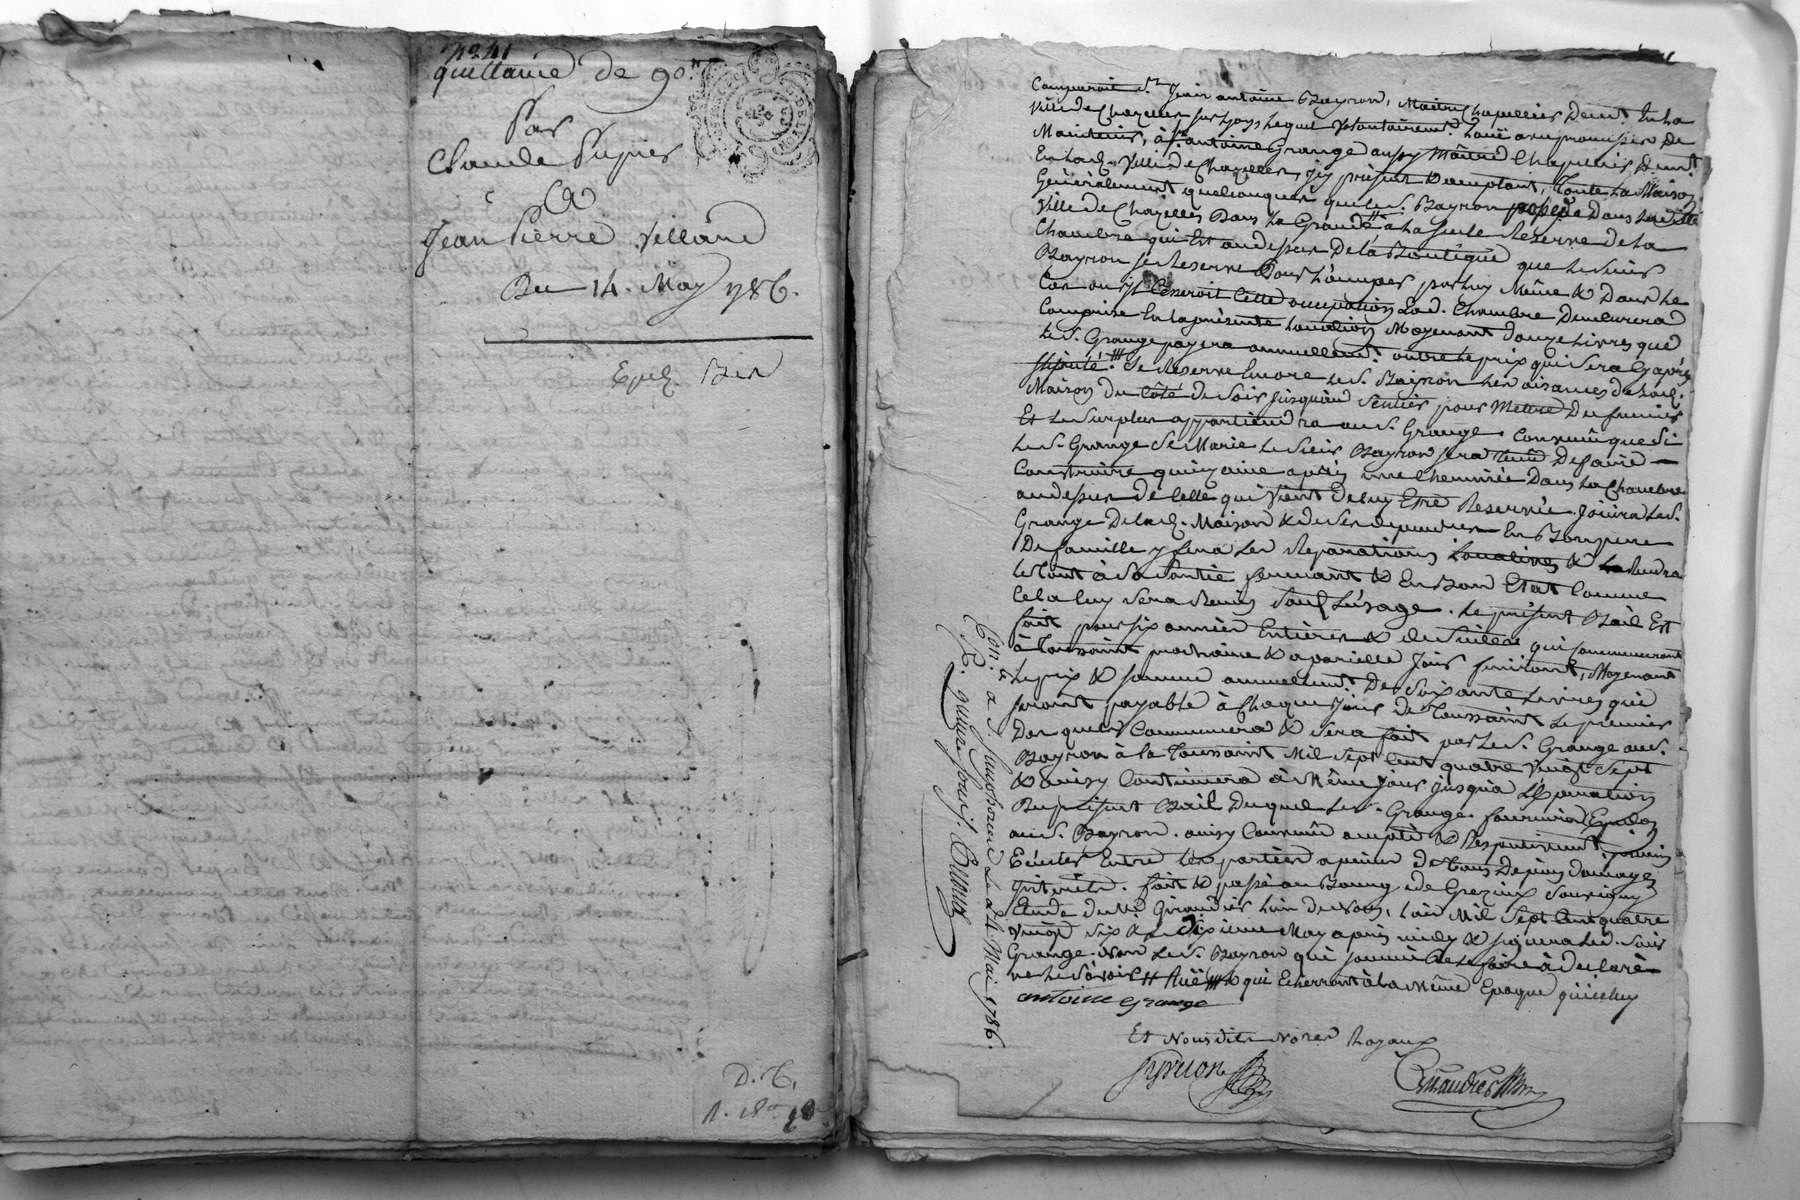 No. 41
quittance de 90.
Par
Claude Pupier
A
Jean Pierre Villard
Du 14. May 1786.
Exped. Bin
D. C.
1. 18
Comparoit Sr. Jean antoine Bayron, Maitre Chapellier Demt. En La
Ville de Chazelles sur Lyon, Lequel volontairemt. Loüé avec promesse de
Maintenir, à Sr. antoine Grange aussy Maitre Chapellier Demt.
En Lad. Ville de Chazelles, icy present & acceptant, Toute La Maison
Généralement quelconques que Led. Sr. Bayron possede Dans Laditte
Ville de Chazelles Dans La Grande à La seule Reserve de La
Chambre qui Est au dessus De la Boutique que Le Sieur
Bayron se Reserve Pour L'occuper par Luy Même & Dans Le
Cas ou il Cesseroit Cette occupation Lad. Chambre Demeurera
Comprise En La présente Location Moyenant douze Livres que
Le Sr. Grange payera annuellemt. outre Le prix qui Sera Cy après
stipulé. Se Reserve Encore Le Sr. Bayron Les aisances de Lad.
Maison Du Côté de Soir jusqu'au Sentier pour Mettre Du fumier
Et Le Surplus appartiendra au Sr. Grange. Convenu que Si
Le Sr. Grange Se Marie Le Sieur Bayron sera tenu De faire
Construire quinzaine après une Cheminée Dans La Chambre
au dessus de Celle qui Vient De luy Etre Reservée. Jouira Le Sr.
Grange De Lad. Maison & de Ses dependances En Bon pere
De famille y fera Les Reparations Locatives & Rendra
Le Tout à Sa Sortie fermant & En Bon Etat Comme
Cela luy Sera Remis Sauf L'usage. Le présent Bail Est
fait pour six années Entieres & de Suitte qui Commenceront
à Toussaint prochaine & a pareille Jour finiront, Moyenant
Le prix & somme annuellemt. De Soixante Livres qui
seront payable à Chaque Jour de Toussaint Le premier
Des quels Commencera & Sera fait par Le Sr. Grange au Sr.
Bayron à la Toussaint Mil Sept Cent quatre Vingt Sept
& ainsy Continuera à Même Jour jusqu'à L'Expiration
Du present Bail Duquel Le Sr. Grange fournira Expedon
au Sr. Bayron. ainsy Convenu accepté & Respectivemt. promis
Executer Entre Les parties a peine de Tous Depens domages
Interêts. fait & passé au Bourg de Grezieux Souvigny
Etude de Me. Giraudier L'un de Nous, L'an Mil Sept Cent quatre
Vingt Six & Le Dixieme May après midy & signera Led. Sieur
Grange Non Le Sr. Bayron qui sommé de Le faire à declaré
ne Le Savoir # Ruë ### & qui Echerront à la Même Epoque qu'iceluy
antoine grange
Et Nousdits Nores Royaux
Giraudier
Con.lé a St. Simphorien Le 24 Mai 1786.
R. quinze sous s.